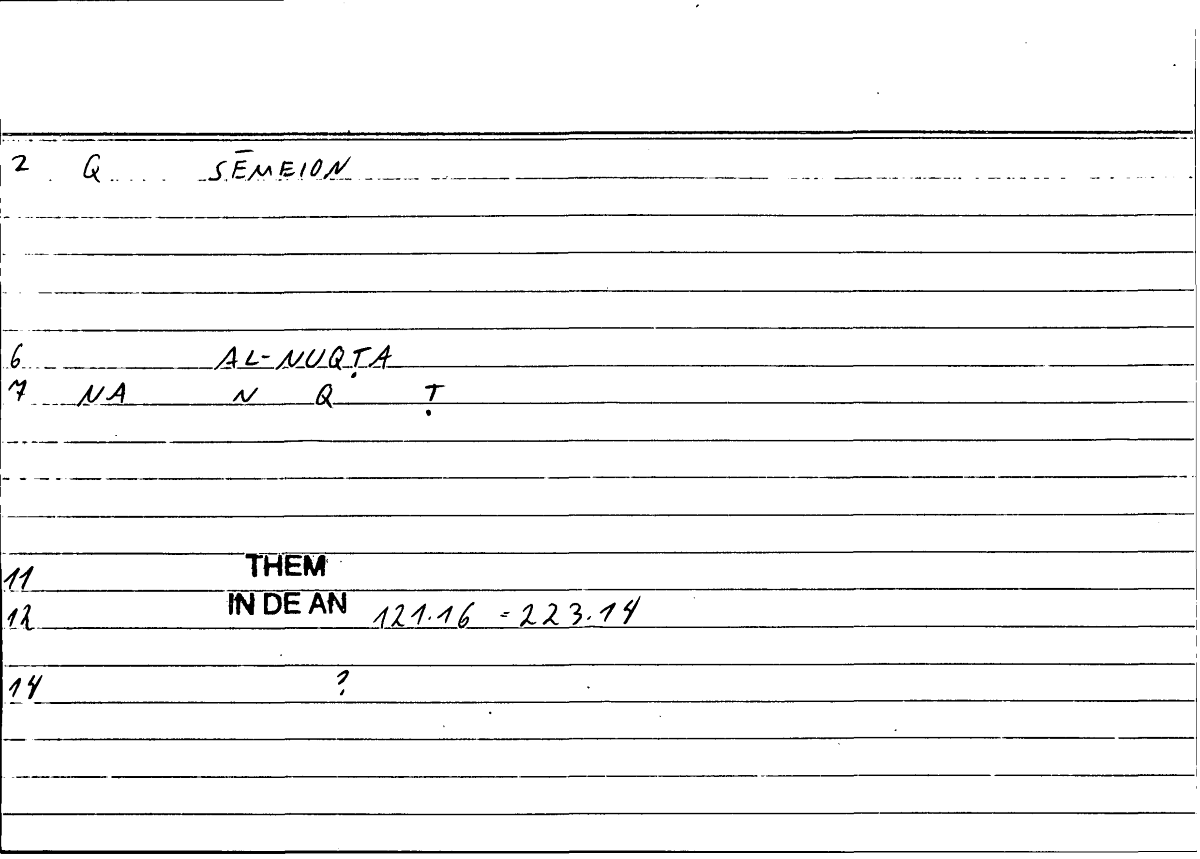 2 Q SĒMEION
6 AL-NUQṬA
7 NA N Q Ṭ
11 THEM
12 IN DE AN 121.16 = 223.14
14 ?